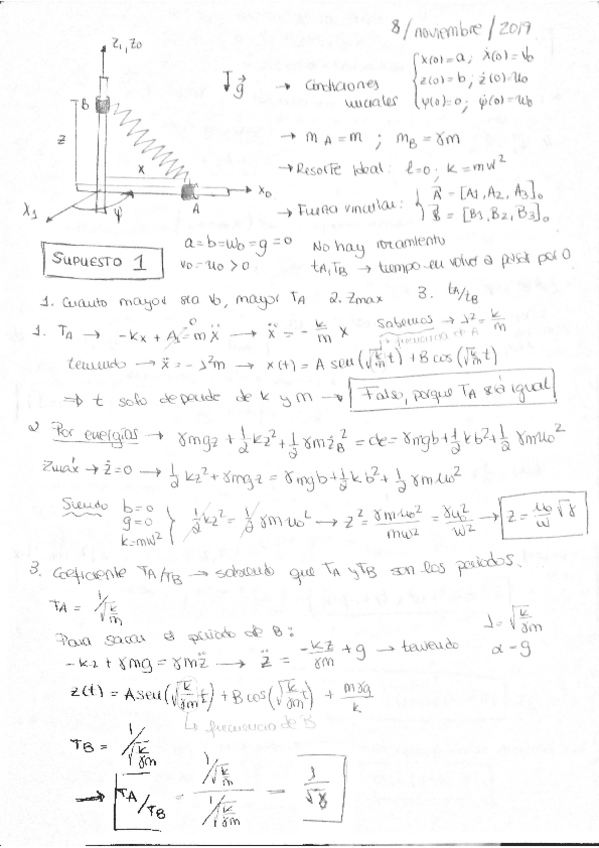 8/noviembre/2019
z₁, z₀
B
z
x
x₀
A
x₁
φ
↓g⃗
→ Condiciones iniciales { x(0)=a; ẋ(0)=v₀
z(0)=b; ż(0)=u₀
φ(0)=0; φ̇(0)=ω₀
→ m_A = m ; m_B = γm
→ Resorte ideal: l=0; k=mω²
→ Fuerza vincular: { A⃗ = [A1, A2, A3]₀
B⃗ = [B1, B2, B3]₀
SUPUESTO 1
a=b=ω₀=g=0
v₀=u₀>0
No hay rozamiento
tA, tB → tiempo en volver a pasar por 0
1. Cuanto mayor sea v₀, mayor TA 2. Zmax 3. tA/tB
1. TA → -kx + A₁ = mẍ → ẍ = -k/m x Sabemos → λ² = k/m
0
↳ frecuencia de A
teniendo → ẍ = -λ²m → x(t) = A sen(√(k/m) t) + B cos(√(k/m) t)
⇒ t solo depende de k y m → Falso, porque TA será igual
2) Por energías → γmgz + 1/2 kz² + 1/2 γmż_B² = cte = γmgb + 1/2 kb² + 1/2 γmu₀²
Zmáx → ż=0 → 1/2 kz² + γmgz = γmgb + 1/2 kb² + 1/2 γmu₀²
Siendo b=0
g=0
k=mω² } 1/2 kz² = 1/2 γmu₀² → z² = γmu₀²/mω² = γu₀²/ω² → z = u₀/ω √γ
3. Coeficiente TA/TB → sabiendo que TA y TB son los periodos.
TA = 1/√(k/m)
Para sacar el periodo de B:
λ = √(k/γm)
α - g
-kz + γmg = γmz̈ → z̈ = -kz/γm + g → teniendo
z(t) = A sen(√(k/γm) t) + B cos(√(k/γm) t) + mγg/k
↳ frecuencia de B
TB = 1/√(k/γm)
→ TA/TB = (1/√(k/m))/(1/√(k/γm)) = 1/√γ